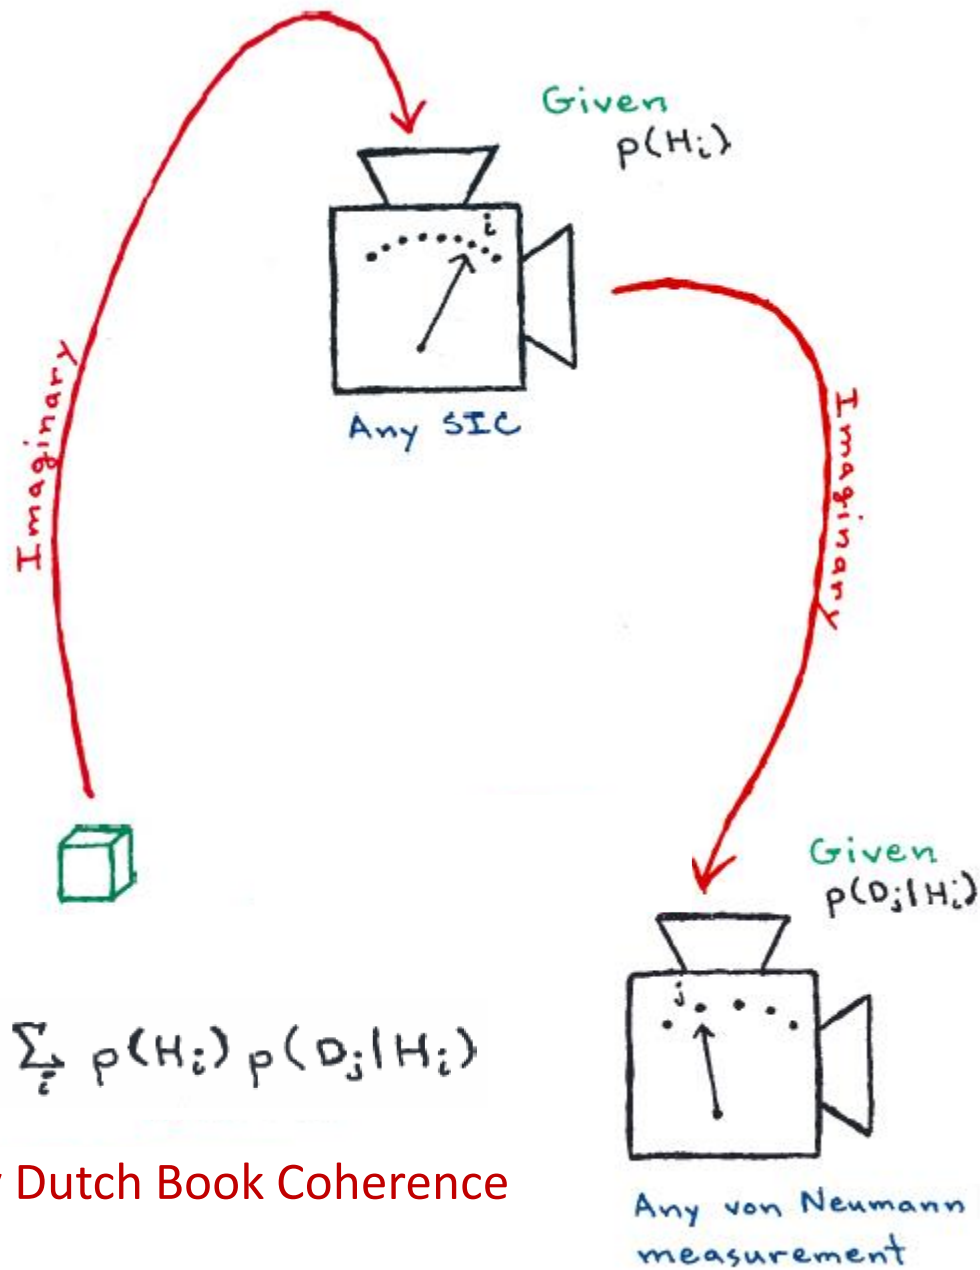 Given
p(Hᵢ)
i
Any SIC
Imaginary
Imaginary
Given
p(Dⱼ|Hᵢ)
j
∑ᵢ p(Hᵢ) p(Dⱼ|Hᵢ)
Dutch Book Coherence
Any von Neumann
measurement